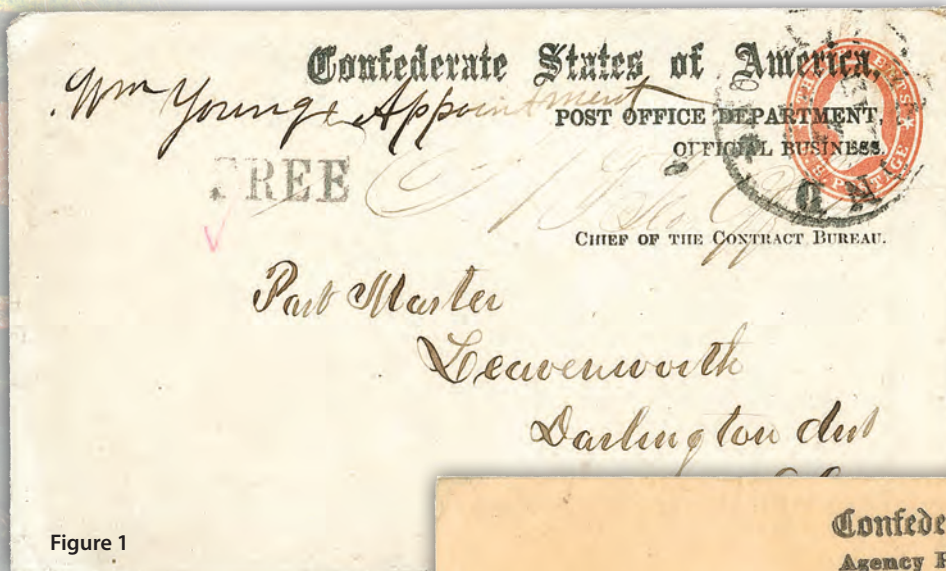 Confederate States of America,
Wm Youngs Appointment
POST OFFICE DEPARTMENT,
OFFICIAL BUSINESS.
FREE
CHIEF OF THE CONTRACT BUREAU.
Post Master
Leavenworth
Darlington dist
Figure 1
Confede
Agency